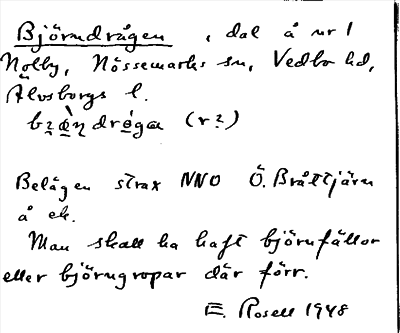 Björndrågen, dal å nr 1
Nolby, Nössemarks sn, Vedbo hd,
Älvsborgs l.
(r?)
Belägen strax NNO Ö. Bråttjärn
å ek.
Man skall ha haft björnfällor
eller björngropar där förr.
E. Rosell 1948